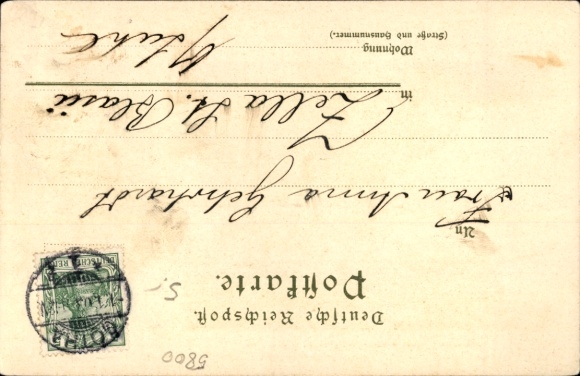 5800
Deutsche Reichspost.
Postkarte.
S.
DEUTSCHES REICH
GOTHA
An
Frau Anna Gehrhardt
in Zella St. Blasii
Wohnung
(Straße und Hausnummer.)